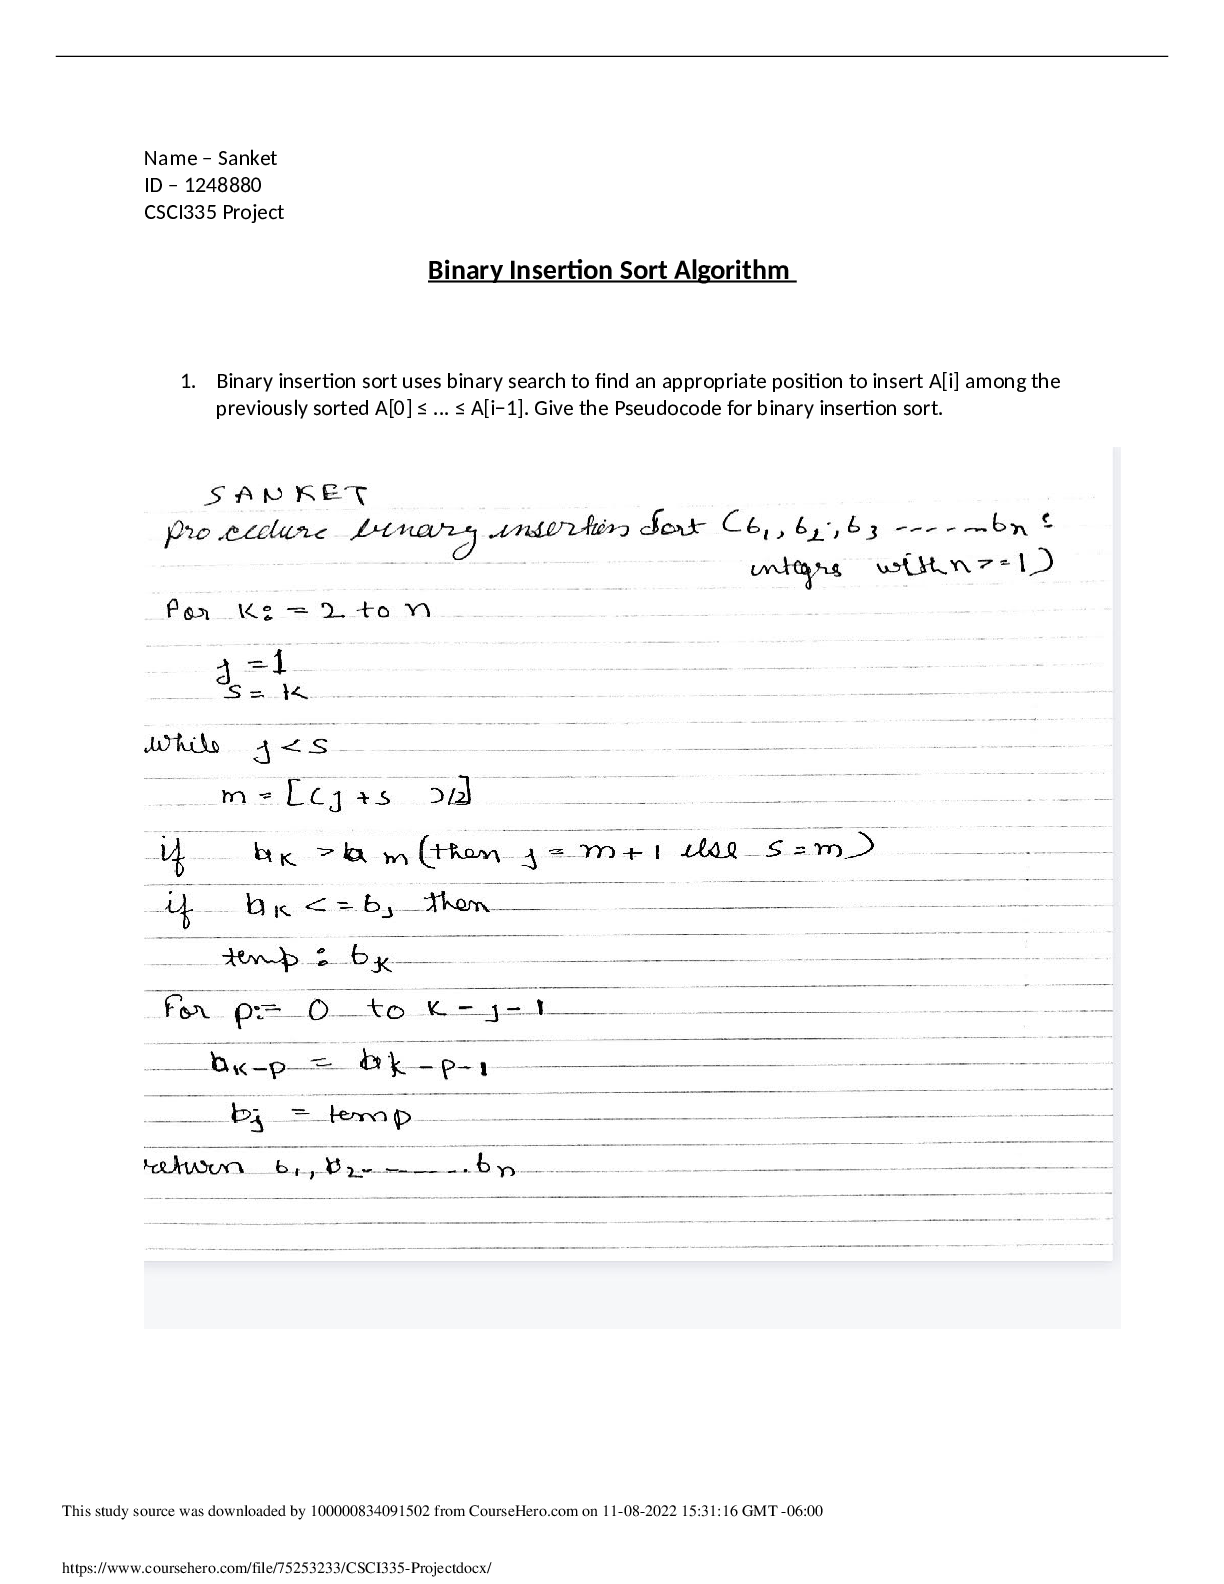 Name – Sanket
ID – 1248880
CSCI335 Project
Binary Insertion Sort Algorithm
1. Binary insertion sort uses binary search to find an appropriate position to insert A[i] among the
previously sorted A[0] ≤ ... ≤ A[i−1]. Give the Pseudocode for binary insertion sort.
SANKET
procedure binary insertion Sort (b1, b2, b3 ------bn :
integrs with n >=1)
For K: = 2 to n
j = 1
s = k
while j < s
m = [(j + s )/2]
if bK > b m (then j = m + 1 else s = m)
if bK <= bj then
temp : bK
For p:= 0 to k - j - 1
bK-p = bk - p - 1
bj = temp
return b1, b2- ------..bn
This study source was downloaded by 100000834091502 from CourseHero.com on 11-08-2022 15:31:16 GMT -06:00
https://www.coursehero.com/file/75253233/CSCI335-Projectdocx/